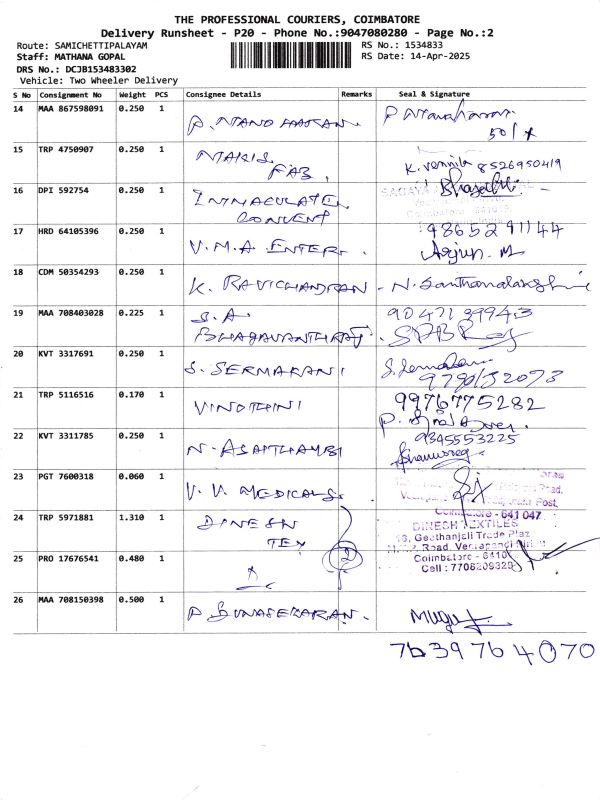 THE PROFESSIONAL COURIERS, COIMBATORE
Delivery Runsheet - P20 - Phone No.:9047080280 - Page No.:2
Route: SAMICHETTIPALAYAM
RS No.: 1534833
Staff: MATHANA GOPAL
RS Date: 14-Apr-2025
DRS No.: DCJB153483302
Vehicle: Two Wheeler Delivery
S No Consignment No Weight PCS Consignee Details Remarks Seal & Signature
14 MAA 867598091 0.250 1
15 TRP 4750907 0.250 1 K. Vennila 8526950419
FAB.
16 DPI 592754 0.250 1 IMMACULATE
CONVENT
17 HRD 64105396 0.250 1 V.M.A. ENTER. 9865291144
Arjun. M
18 CDM 50354293 0.250 1 K. RAVICHANDRAN - N. Santhanalakshmi
19 MAA 708403028 0.225 1 S.A
20 KVT 3317691 0.250 1 S. SERMARANI
9790152073
21 TRP 5116516 0.170 1 VINOTHINI 9976775282
22 KVT 3311785 0.250 1 N. ASAITHAMBI 9345553225
23 PGT 7600318 0.060 1 V.V. MEDICALS
Coimbatore - 641 047
24 TRP 5971881 1.310 1 DINESH
TEX
DINESH TEXTILES
16, Geethanjali Trade Plaz
Road, Veerapandi
25 PRO 17676541 0.480 1 2
Coimbatore - 6410
Cell : 7708209329
26 MAA 708150398 0.500 1 P. GUNASEKARAN.
7639764070